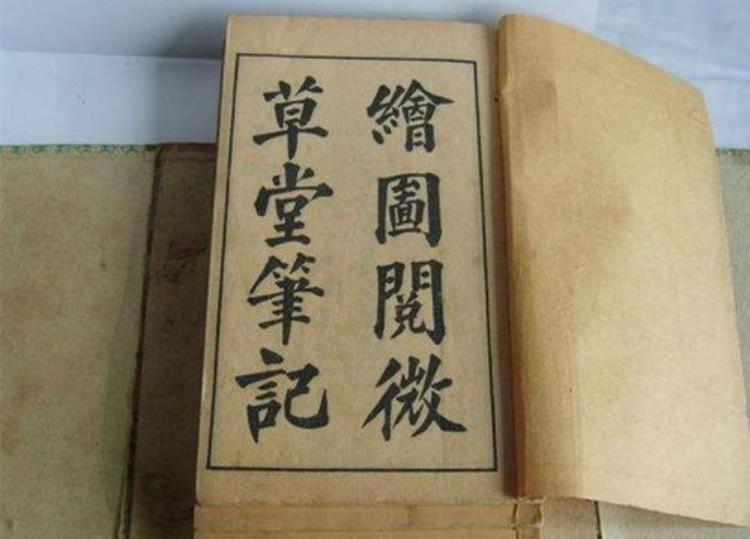 繪圖閱微
草堂筆記